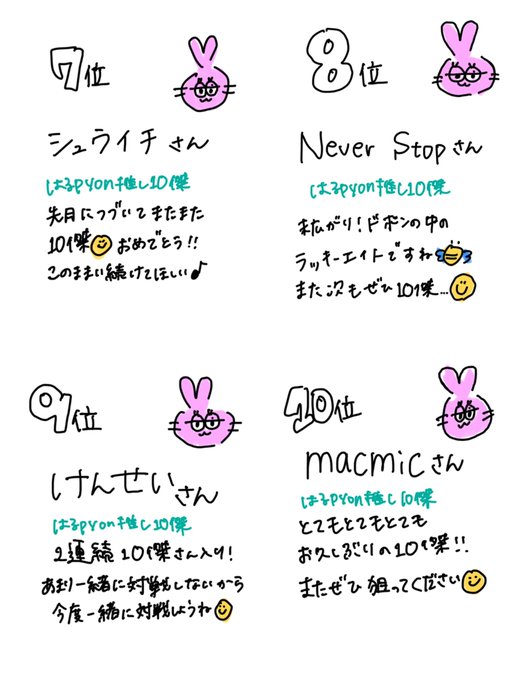 7位
シュライチさん
はるpyon推し10傑
先月につづいてまたまた
10傑 おめでとう!!
このまままい続けてほしい♪
8位
Never Stopさん
はるpyon推し10傑
末広がり!ドボンの中の
ラッキーエイトですね
また次もぜひ10傑...
9位
けんせいさん
はるpyon推し10傑
2連続10傑さん入り!
あまり一緒に対戦しないから
今度一緒に対戦しようね
10位
macmicさん
はるpyon推し10傑
とてもとてもとても
お久しぶりの10傑!!
またぜひ狙ってください